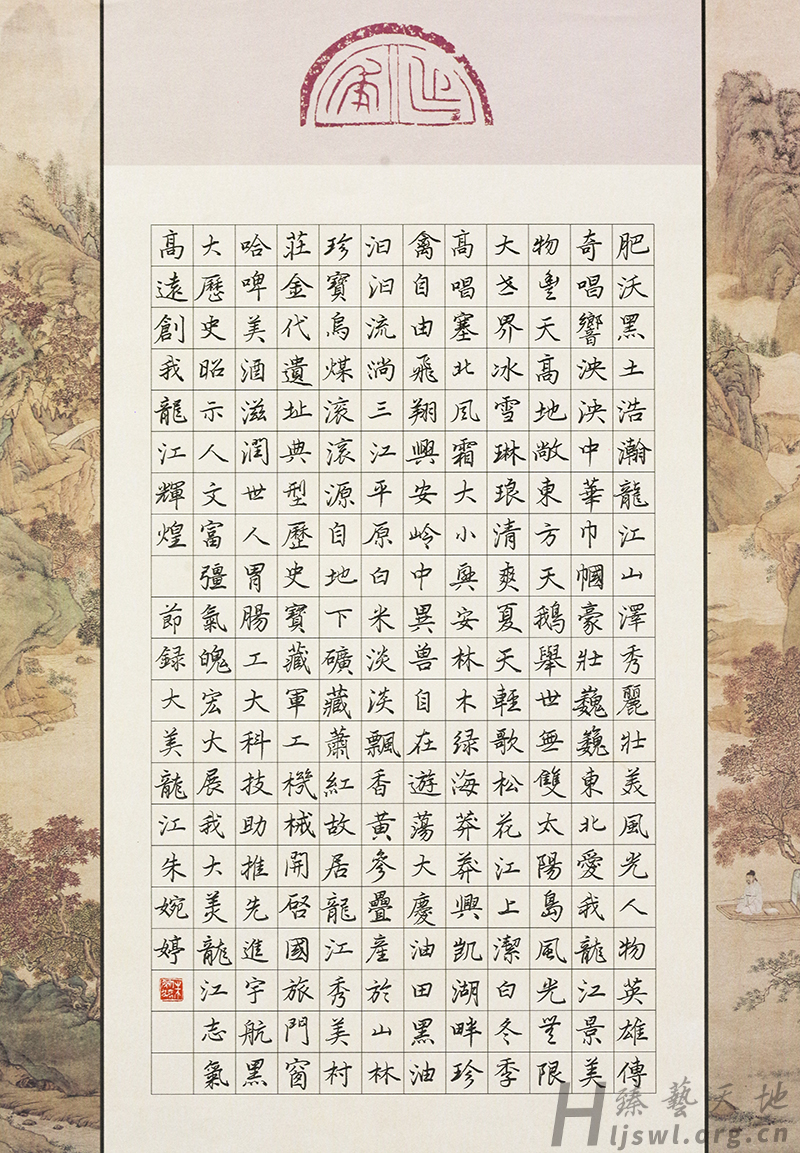 肥沃黑土浩瀚龍江山澤秀麗壯美風光人物英雄傳
奇唱響泱泱中華巾幗豪壯巍巍東北愛我龍江景美
物豐天高地敞東方天鵝舉世無雙太陽島風光無限
大世界冰雪琳琅清爽夏天輕歌松花江上潔白冬季
高唱塞北風霜大小興安林木緑海莽莽興凱湖畔珍
禽自由飛翔興安岭中異兽自在遊蕩大慶油田黑油
汩汩流淌三江平原白米淡淡飄香黄參疊産於山林
珍寶烏煤滚滚源自地下礦藏蕭紅故居龍江秀美村
莊金代遺址典型歷史寶藏軍工機械開啓國旅門窗
哈啤美酒滋潤世人胃腸工大科技助推先進宇航黑
大歷史昭示人文富彊氣魄宏大展我大美龍江志氣
高遠創我龍江輝煌 節録大美龍江朱婉婷
臻藝天地
Hljswl.org.cn